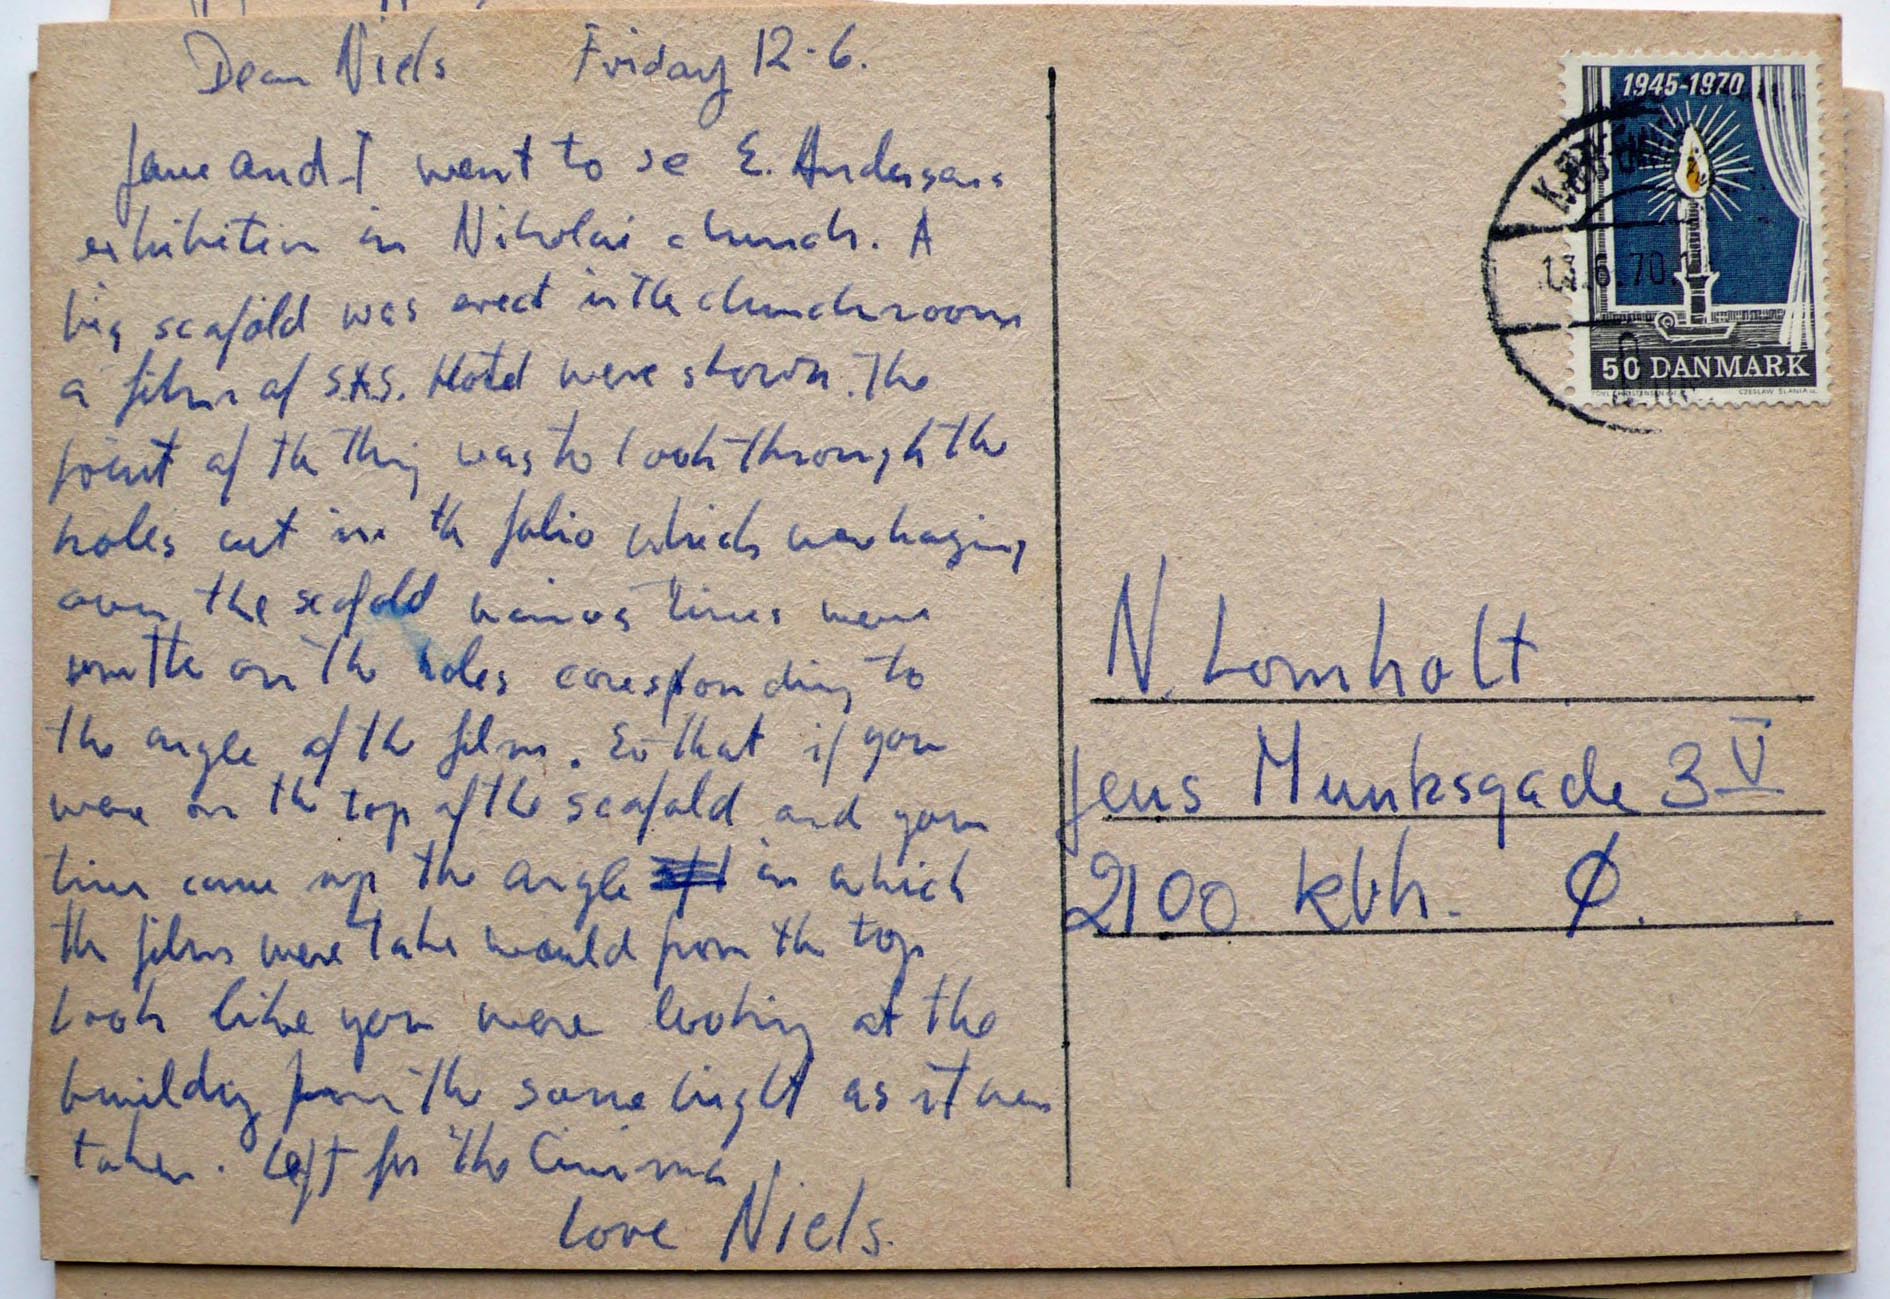 Dear Niels Friday 12-6.
Jane and I went to se E. Andersens
exhibition in Nikolai church. A
big scafold was erect in the church room
a film of S.A.S. Hotel were shown. The
point of th thing was to look through the
holes cut in th folio which were haging
over the scafold various times were
writte on the holes coresponding to
the angle of the film. So that if you
were on th top of the scafold and your
time came up the angle in which
th film were take would from th top
look like you were looking at the
building from the same hight as it was
taken. Left for the Cinima
Love Niels.
1945-1970
13.6.70.
50 DANMARK
CZESLAW SLANIA
N. Lomholt
Jens Munksgade 3 V
2100 Kbh. Ø.